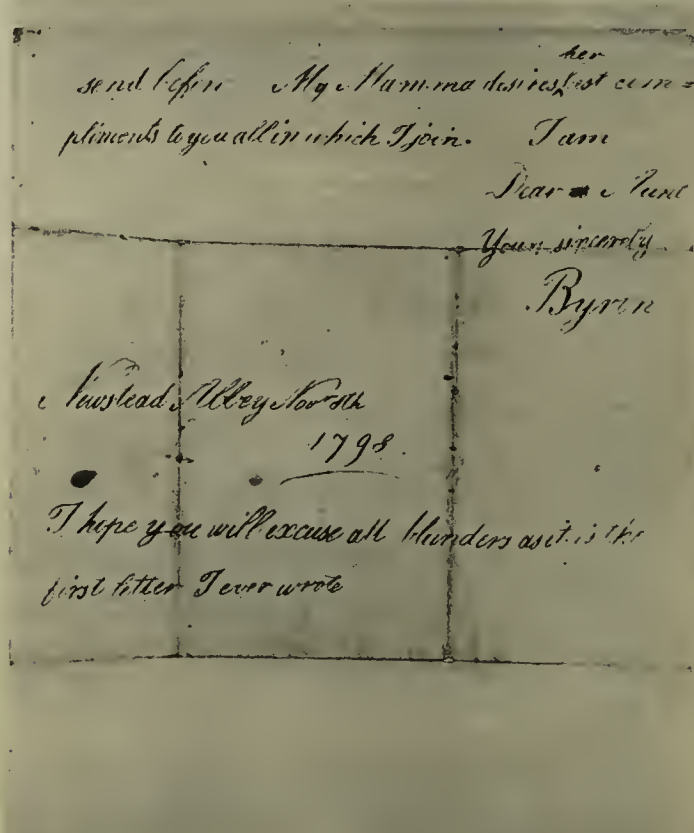 her
send befor My Mamma desires best com=
pliments to you all in which I join. I am
Dear Aunt
Yours sincerely
Byron
Newstead Abbey Novr 8th
1798
I hope you will excuse all blunders as it is the
first letter I ever wrote